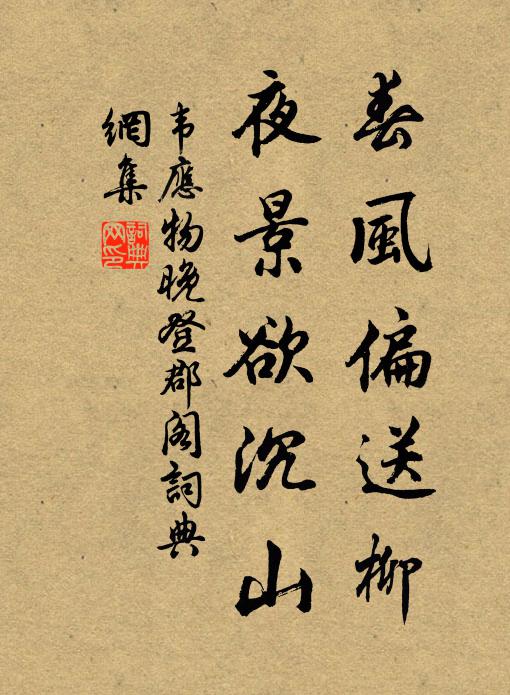 春風偏送柳
夜景欲沉山
韦應物晚登郡阁詞典
網集
詞典
网印